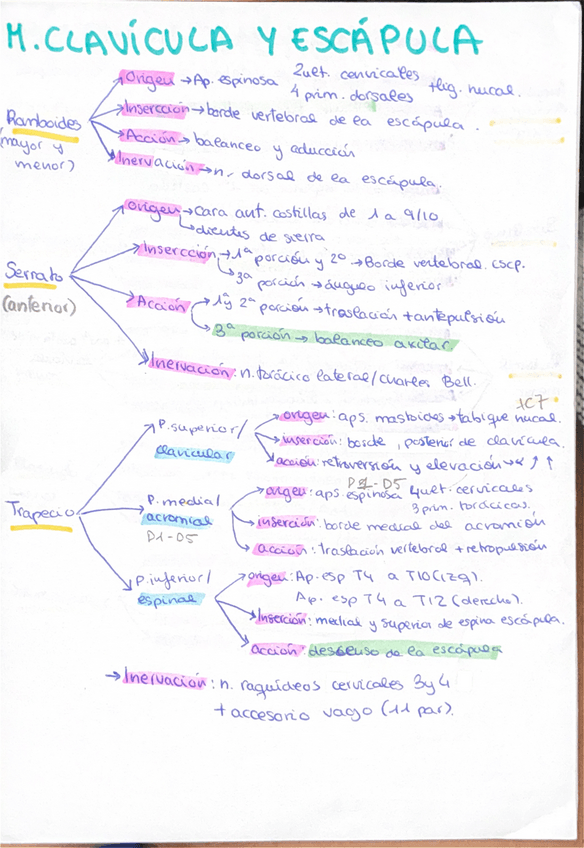 M. CLAVÍCULA Y ESCÁPULA
Romboides
(mayor y
menor)
Origen → Ap. espinosa 2 ult. cervicales + lig. nucal.
4 prim. dorsales
Insercción → borde vertebral de la escápula.
Acción → balanceo y aducción
Inervación → n. dorsal de la escápula.
Serrato
(anterior)
Origen → Cara ant. costillas de 1 a 9/10
↳ dientes de sierra
Insercción → 1ª porción y 2ª → Borde vertebral. escp.
↳ 3ª porción → ángulo inferior
Acción → 1ª y 2ª porción → traslación + antepulsión
↳ 3ª porción → balanceo axilar
Inervación: n. torácico lateral / Charles Bell.
Trapecio
P. superior/
clavicular
+C7
origen: aps. mastoides → tabique nucal.
inserción: borde posterior de clavícula.
acción: retroversión y elevación → ↑ ↑
P. medial/
acromial
D1-D5
D1-D5
origen: aps espinosa 4 ult. cervicales
3 prim. torácicas.
inserción: borde medial del acromión
acción: traslación vertebral + retropulsión
P. inferior/
espinal
origen: Ap. esp T4 a T10 (izq).
Ap. esp T4 a T12 (derecho).
Inserción: medial y superia de espina escápula.
acción: descenso de la escápula
→ Inervación: n. raquídeos cervicales 3 y 4
+ accesorio vago (11 par).